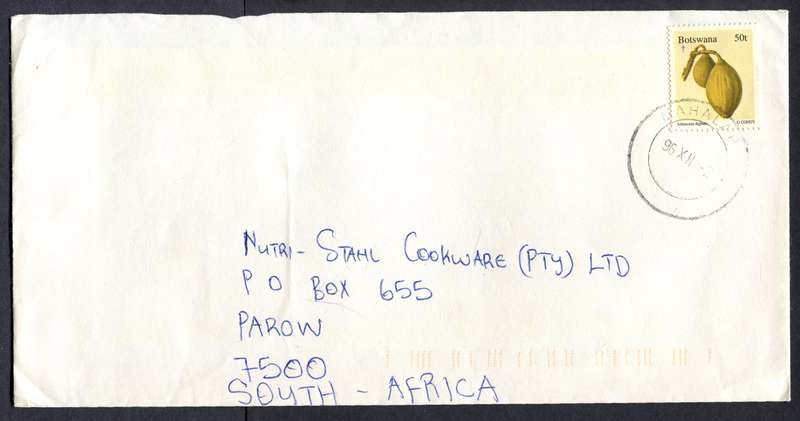 Botswana 50t
96 XII
NUTRI-STAHL COOKWARE (PTY) LTD
P O BOX 655
PAROW
7500
SOUTH - AFRICA